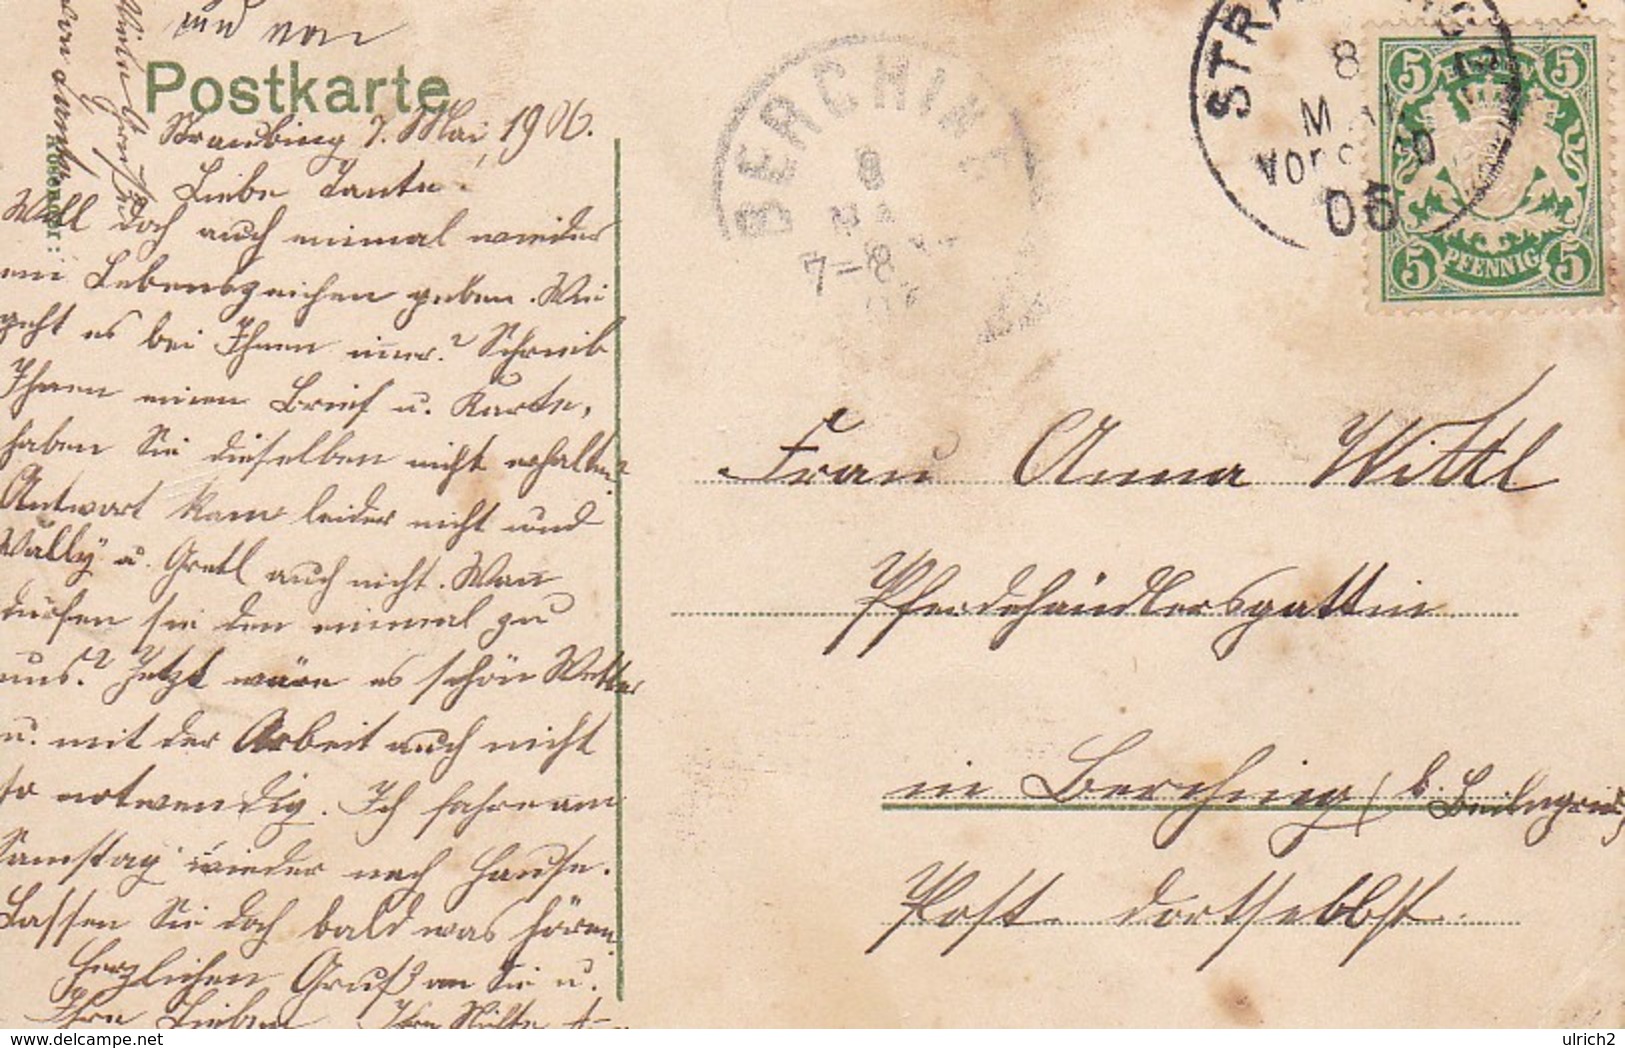 und von
Postkarte
Absender:
Straubing 7. Mai 1906.
Liebe Tante!
Will doch auch einmal wieder
ein Lebenszeichen geben. Wie
geht es bei Ihnen imer? Schrieb
Ihnen einen Brief u. Karte,
haben Sie dieselben nicht erhalten?
Antwort kam leider nicht und
Wally u. Gretl auch nicht. Wan
dürfen sie den einmal zu
uns? Jetzt wäre es schön Wetter
u. mit der Arbeit auch nicht
so notwendig. Ich fahre am
Samstag wieder nach Hause.
Lassen Sie doch bald was hören
Herzlichen Gruß an Sie u.
Ihre Lieben Ihre
BERCHIN
8
7-8
STRA
8
MAI
VOR
06
5 5
5 PFENNIG 5
Frau Anna Wittl
Pferdehändlersgattin
in Berching (b. Beilngries)
Post dortselbst.
delcampe.net
ulrich2